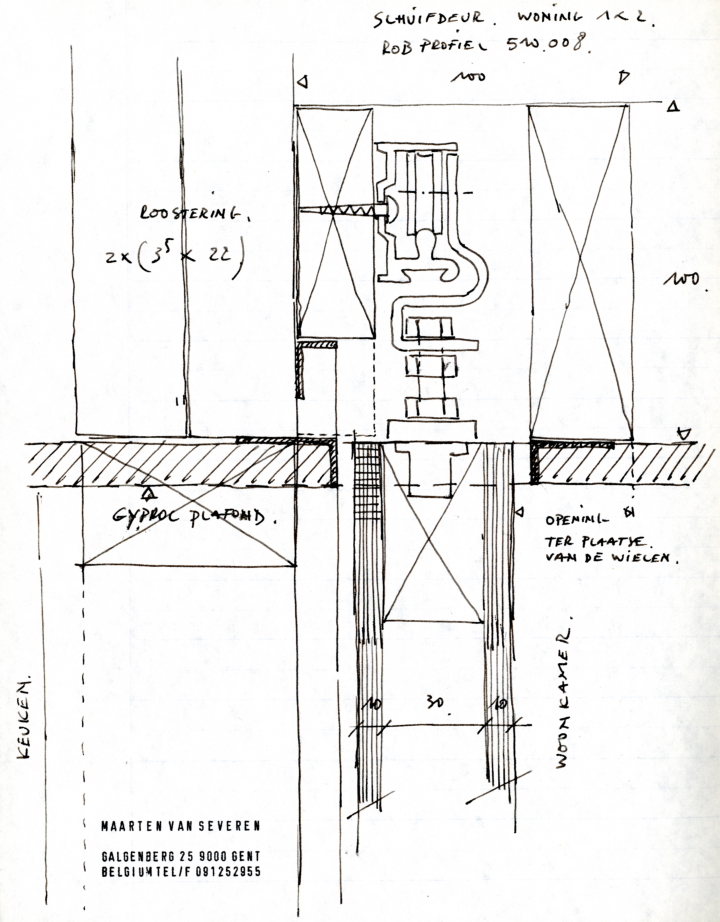 SCHUIFDEUR. WONING 1 & 2.
ROB PROFIEL 510.008.
100
ROOSTERING.
2x (3⁵ x 22)
100.
GYPROC PLAFOND.
OPENING
TER PLAATSE
VAN DE WIELEN.
KEUKEN.
WOONKAMER.
10 30. 10
MAARTEN VAN SEVEREN
GALGENBERG 25 9000 GENT
BELGIUM TEL/F 091252955